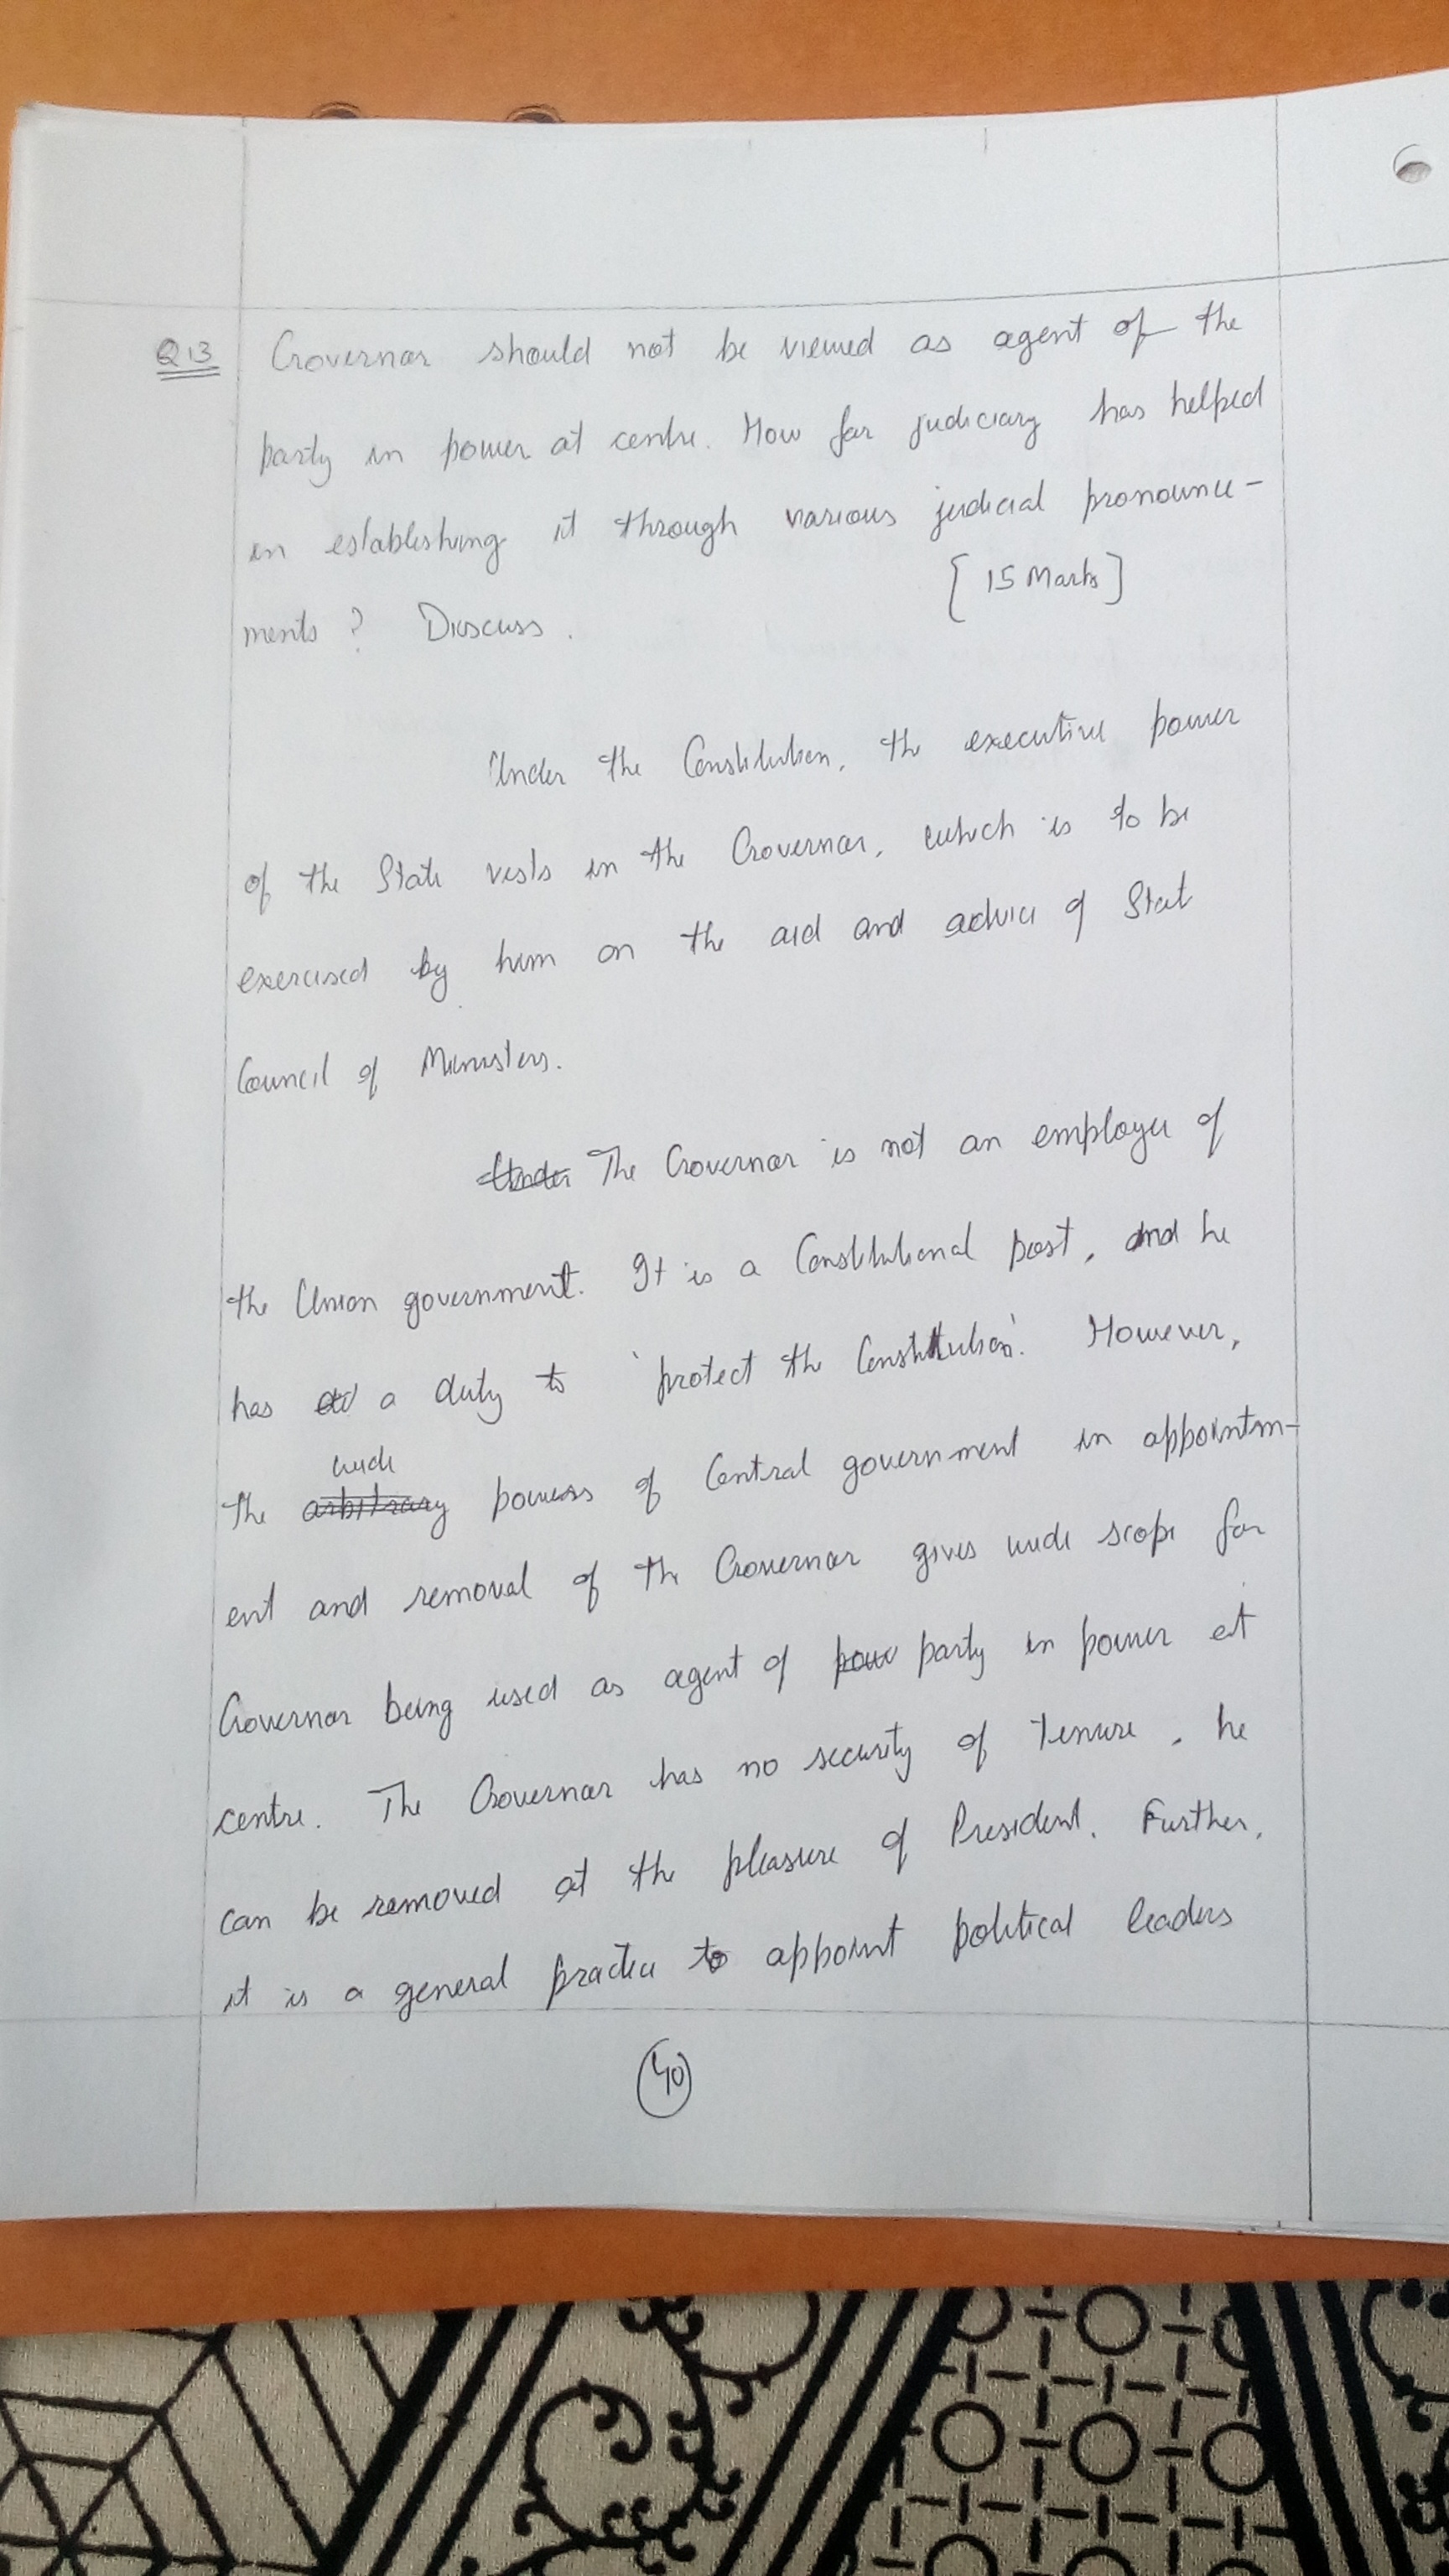 Q13 Governor should not be viewed as agent of the
party in power at centre. How far judiciary has helped
in establishing it through various judicial pronounce-
[15 Marks]
ments? Discuss.
Under the Constitution, the executive power
of the State vests in the Governor, which is to be
exercised by him on the aid and advice of Stat
Council of Ministers.
Under The Governor is not an employee of
the Union government. It is a Constitutional post, and he
has a duty to 'protect the Constitution'. However,
wide
the arbitrary powers of Central government in appointm-
ent and removal of the Governor gives wide scope for
Governor being used as agent of pow party in power at
centre. The Governor has no security of tenure, he
can be removed at the pleasure of President. Further,
it is a general practice to appoint political leaders
40